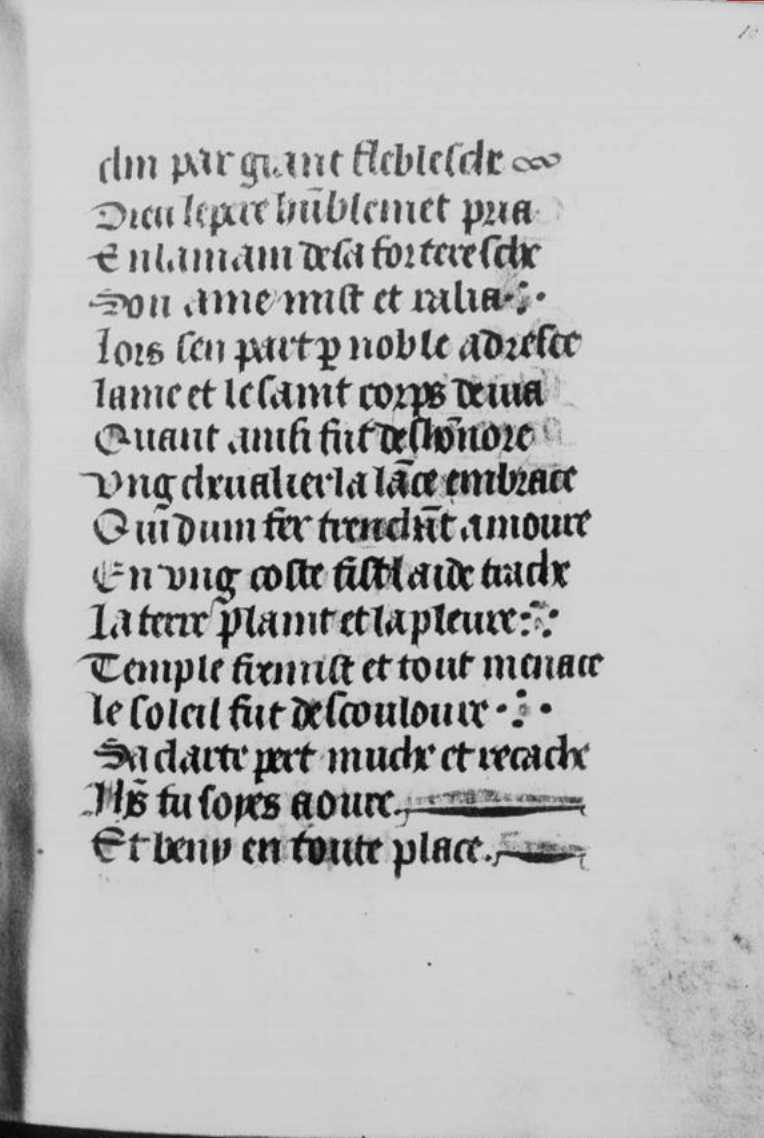 chin par grant flebleſche
Dieu le pere hũblemet pria
En la main de ſa fortereſche
Son ame miſt et ralia
Lors ſen part ꝑ noble adreſce
lame et le ſaint corps deuia
Quant ainſi fut deſhõnore
Vng cheualier la lãce embrace
Qui dun fer trenchãt amoure
En vng coſte fiſt laide trache
La terre plaint et la pleure
Temple fremiſt et tout menace
le ſoleil fut deſcouloure
Sa clarte pert muche et recache
Ihs̃ tu ſoyes aoure
Et beny en toute place